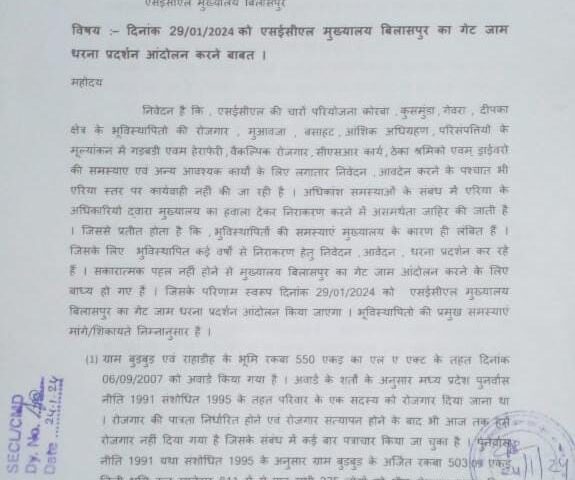 एसईसीएल मुख्यालय बिलासपुर
विषय :– दिनांक 29/01/2024 को एसईसीएल मुख्यालय बिलासपुर का गेट जाम
धरना प्रदर्शन आंदोलन करने बाबत ।
महोदय
निवेदन है कि , एसईसीएल की चारों परियोजना कोरबा , कुसमुंडा, गेवरा , दीपका
क्षेत्र के भूविस्थापितो की रोजगार , मुआवजा , बसाहट , आंशिक अधिग्रहण , परिसंपत्तियों के
मूल्यांकन में गड़बडी एवम हेराफेरी, वैकल्पिक रोजगार, सीएसआर कार्य, ठेका श्रमिको एवम् ड्राईवरो
की समस्याए एवं अन्य आवश्यक कार्यो के लिए लगातार निवेदन , आवदेन करने के पश्चात भी
एरिया स्तर पर कार्यवाही नहीं की जा रही है । अधिकांश समस्याओ के संबध में एरिया के
अधिकारियों द्वारा मुख्यालय का हवाला देकर निराकरण करने में असमर्थता जाहिर की जाती है
। जिससे प्रतीत होता है कि , भूविस्थापितों की समस्याएं मुख्यालय के कारण ही लंबित हैं ।
जिसके लिए भूविस्थापित कई वर्षो से निराकरण हेतु निवेदन , आवेदन , धरना प्रदर्शन कर रहे
हैं । सकारात्मक पहल नहीं होने से मुख्यालय बिलासपुर का गेट जाम आंदोलन करने के लिए
बाध्य हो गए है । जिसके परिणाम स्वरूप दिनांक 29/01/2024 को एसईसीएल मुख्यालय
बिलासपुर का गेट जाम धरना प्रदर्शन आंदोलन किया जाएगा । भूविस्थापितो की प्रमुख समस्याए
मांगे/शिकायते निम्नानुसार है ।
(1) ग्राम बुडबुड एवं राहाडीह के भूमि रकबा 550 एकड़ का एल ए एक्ट के तहत दिनांक
06/09/2007 को अवार्ड किया गया है । अवार्ड के शर्तो के अनुसार मध्य प्रदेश पुनर्वास
नीति 1991 संशोधित 1995 के तहत परिवार के एक सदस्य को रोजगार दिया जाना था
। रोजगार की पात्रता निर्धारित होने एवं रोजगार सत्यापन होने के बाद भी आज तक हमे
रोजगार नहीं दिया गया है जिसके संबंध में कई बार पत्राचार किया जा चुका है । पुनर्वास
नीति 1991 यथा संशोधित 1995 के अनुसार ग्राम बुडबुड के अर्जित रकबा 503.09 एकड़
SECL/CMD
Dy. No.
Date 24.1.24
24/1/24